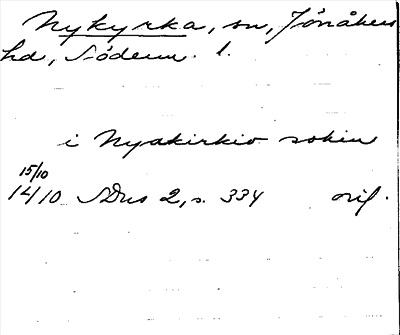 Nykyrka, sn, Jönåkers
hd, Söderm. l.
i Nyakirkio sokin
15/10
14/10 SDns 2, s. 334 orig.